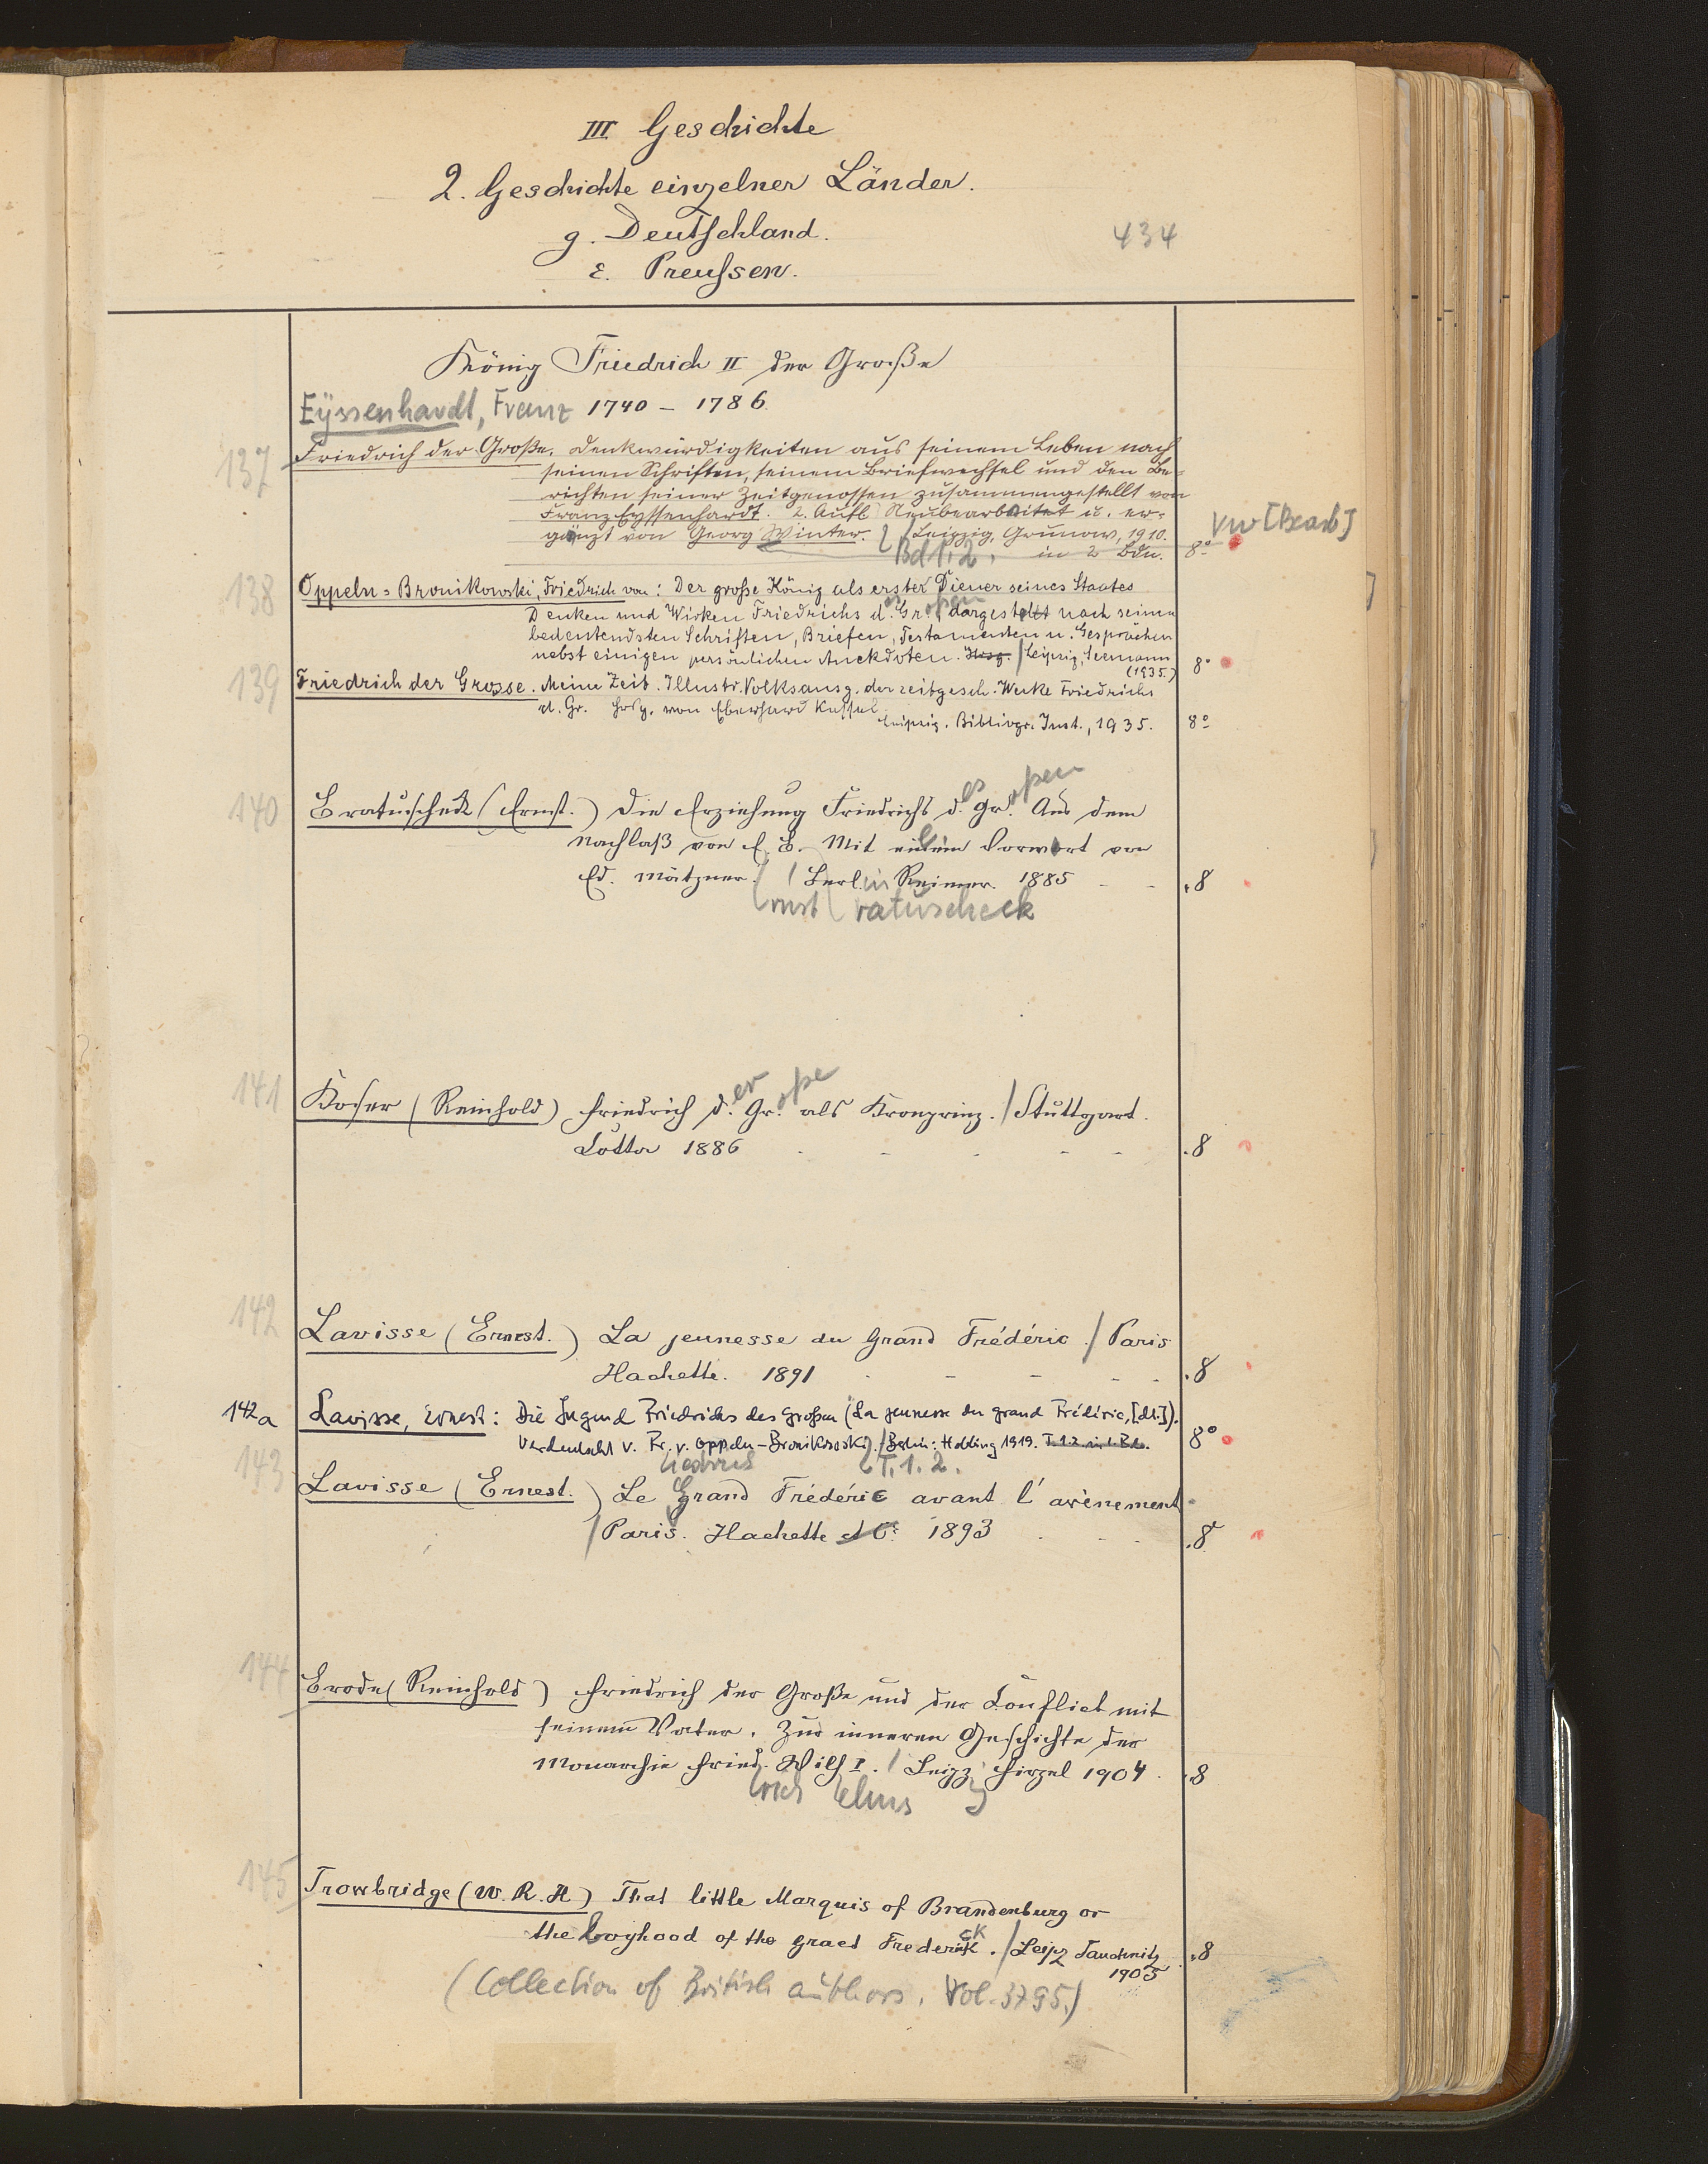 III Geschichte
2. Geschichte einzelner Länder.
g. Deutschland.
434
ε. Preußen.
König Friedrich II der Große
Eyssenhardt, Franz 1740 – 1786.
137 Friedrich der Große. Denkwürdigkeiten aus seinem Leben nach
seinen Schriften, seinem Briefwechsel und den Be-
richten seiner Zeitgenossen zusammengestellt von
Franz Eyssenhardt. 2. Aufl Neubearbeitet u. er-
gänzt von Georg Winter. / Leipzig, Grunow, 1910.
Bd 1. 2. in 2 Bdn. 8° VW [Bearb]
138 Oppeln-Bronikowski, Friedrich von: Der große König als erster Diener seines Staates
Denken und Wirken Friedrichs des Großen dargestellt nach seinen
bedeutendsten Schriften, Briefen, Testamenten u. Gesprächen
nebst einigen persönlichen Anekdoten. Hrsg. / Leipzig, Seemann
(1935.) 8°
139 Friedrich der Grosse. Meine Zeit. Illustr. Volksausg. der zeitgesch. Werke Friedrichs
d. Gr. Hrsg. von Eberhard Kessel.
Leipzig. Bibliogr. Inst., 1935. 8°
140 Bratuscheck (Ernst.) Die Erziehung Friedrichs des Großen. Aus dem
Nachlaß von E. B. Mit einem Vorwort von
Ed. Mätzner. / Berlin Reimer. 1885 - - . 8
ernst ratuscheck
141 Koser (Reinhold) Friedrich der Große als Kronprinz. / Stuttgart.
Cotta 1886 - - - - - . 8
142 Lavisse (Ernest.) La jeunesse du Grand Frédéric. / Paris
Hachette. 1891 - - - - - . 8
142a Lavisse, Ernest: Die Jugend Friedrichs des Großen (La jeunesse du grand Frédéric, [dt.]).
Verdeutscht v. Fr. v. Oppeln-Bronikowski. / Berlin: Hobbing 1919. T. 1. 2. in 1. Bde. 8°
iedrich T. 1. 2.
143 Lavisse (Ernest.) Le Grand Frédéric avant l'avènement.
/ Paris. Hachette et Cie 1893 - - - . 8
144 Brode (Reinhold) Friedrich der Große und der Conflict mit
seinem Vater. Zur inneren Geschichte der
Monarchie Fried. Wilh I. / Leipz Hirzel 1904. . 8
rich elms g
145 Trowbridge (W. R. H) That little Marquis of Brandenburg or
the boyhood of the graet Frederick. / Leipz Tauchnitz . 8
1905
(Collection of British authors. Vol. 3795.)